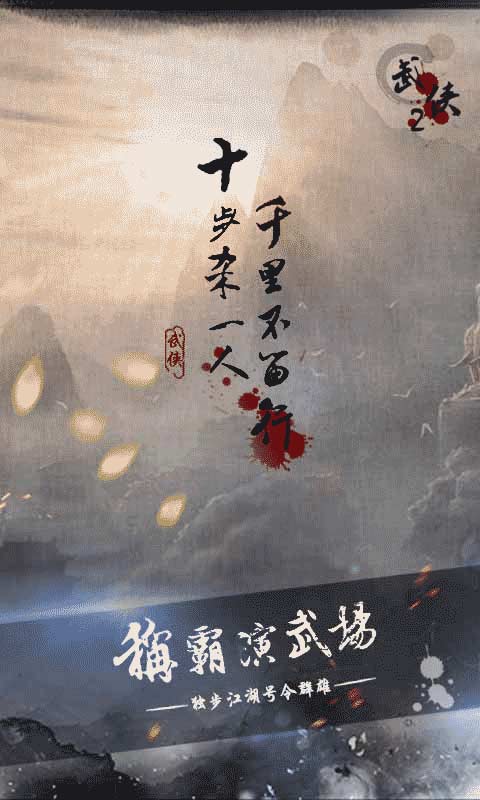 武侠2
十步杀一人
千里不留行
武侠
稱霸演武场
独步江湖号令群雄